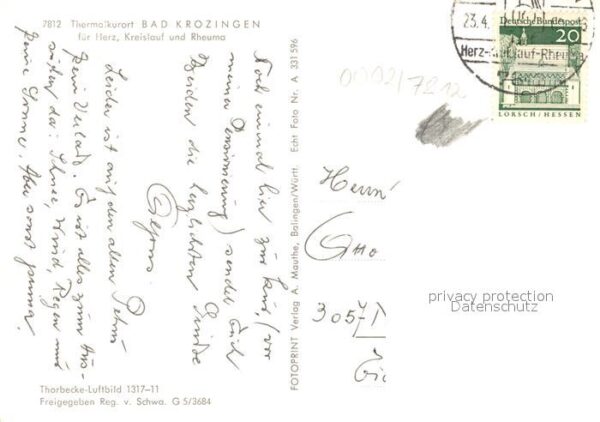 7812 Thermalkurort BAD KROZINGEN
für Herz, Kreislauf und Rheuma
Noch einmal hier zur Kur (vor
meiner Pensionierung) sendet Euch
Beiden die herzlichsten Grüße
Alfons.
Leider ist auf den alten Petrus
kein Verlaß. Es ist alles zum Aus-
suchen da: Schnee, Wind, Regen und
keine Sonne. Aber sonst
Thorbecke-Luftbild 1317–11
Freigegeben Reg. v. Schwa. G 5/3684
FOTOPRINT Verlag A. Mauthe, Balingen/Württ. Echt Foto Nr. A 331596
23.4.
Herz-Kreislauf-Rheuma
Deutsche Bundespost
20
LORSCH/HESSEN
00021/7812
Herrn
Otto
3057
privacy protection
Datenschutz